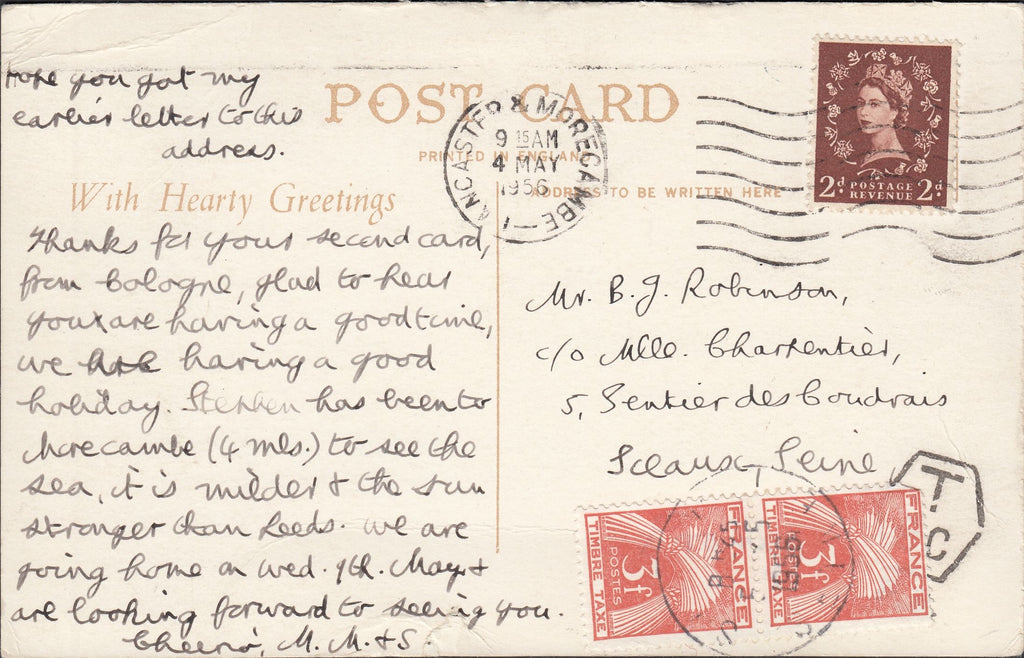 Hope you got my
earlier letter to this
address.
POST CARD
PRINTED IN ENGLAND
With Hearty Greetings
ADDRESS TO BE WRITTEN HERE
LANCASTER & MORECAMBE
9 15 AM
4 MAY
1956
2d POSTAGE REVENUE 2d
Thanks for your second card,
from Cologne, glad to hear
you are having a good time,
we are having a good
holiday. Stephen has been to
Morecambe (4 mls.) to see the
sea, it is milder & the sun
stronger than Leeds. We are
going home on Wed. 9th. May &
are looking forward to seeing you.
Cheerio, M. M. & S.
Mr. B. J. Robinson,
c/o Mlle. Charpentier,
5, Sentier des Coudrais
Sceaux, Seine
T
C
FRANCE
3f
POSTES
TIMBRE TAXE
FRANCE
3f
POSTES
TIMBRE TAXE